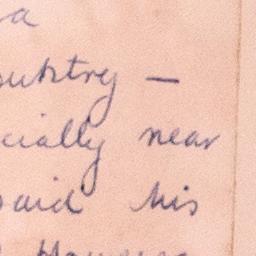 a
ountry —
cially near
said his